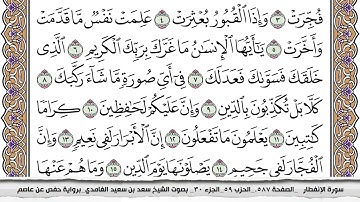 فُجِّرَتْ ٣ وَإِذَا ٱلْقُبُورُ بُعْثِرَتْ ٤ عَلِمَتْ نَفْسٌ مَّا قَدَّمَتْ
وَأَخَّرَتْ ٥ يَٰٓأَيُّهَا ٱلْإِنسَٰنُ مَا غَرَّكَ بِرَبِّكَ ٱلْكَرِيمِ ٦ ٱلَّذِى
خَلَقَكَ فَسَوَّىٰكَ فَعَدَلَكَ ٧ فِىٓ أَىِّ صُورَةٍ مَّا شَآءَ رَكَّبَكَ ٨
كَلَّا بَلْ تُكَذِّبُونَ بِٱلدِّينِ ٩ وَإِنَّ عَلَيْكُمْ لَحَٰفِظِينَ ١٠ كِرَامًا
كَٰتِبِينَ ١١ يَعْلَمُونَ مَا تَفْعَلُونَ ١٢ إِنَّ ٱلْأَبْرَارَ لَفِى نَعِيمٍ ١٣ وَإِنَّ
ٱلْفُجَّارَ لَفِى جَحِيمٍ ١٤ يَصْلَوْنَهَا يَوْمَ ٱلدِّينِ ١٥ وَمَا هُمْ عَنْهَا
سورة الإنفطار _الصفحة ٥٨٧_ الحزب ٥٩_الجزء ٣٠_ بصوت الشيخ سعد بن سعيد الغامدي _برواية حفص عن عاصم